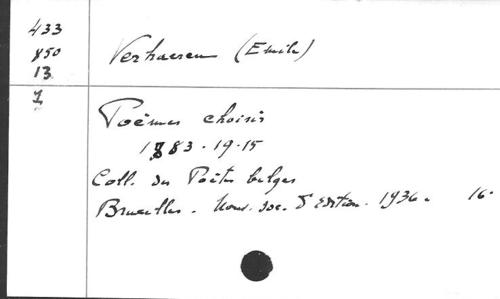 433
850
13
1
Verhaeren (Emile)
Poëmes choisis
1883-1915
Coll. des Poètes belges
Bruxelles. Nouv. Soc. d'édition. 1936. 16°